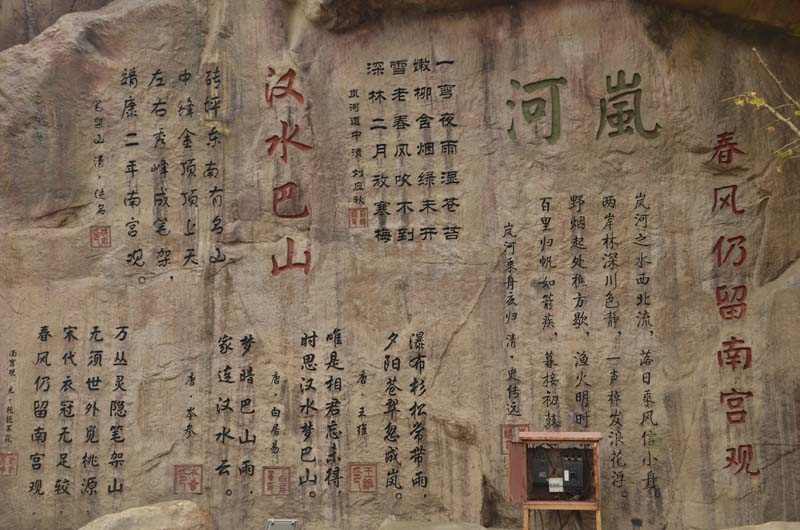 春风仍留南宫观
嵐河
岚河之水西北流，落日乘风信小舟
两岸林深川色静，一声棹发浪花浮。
野烟起处樵方歇，渔火明时
百里归帆如箭疾，暮接初鼓
岚河乘舟夜归 清，史传远
一弯夜雨湿苍苔
嫩柳含烟绿未开
雪老春风吹不到
深林二月放寒梅
岚河道中 清 刘应秋
汉水巴山
砖坪东南有名山
中峰金顶顶上天
左右秀峰成笔架，
靖康二年南宫观。
笔架山 清，佚名
瀑布杉松常带雨，
夕阳苍翠忽成岚。
唐，王维
唯是相君忘未得，
时思汉水梦巴山。
唐，白居易
梦暗巴山雨，
家连汉水云。
唐，岑参
万丛灵隐笔架山
无须世外觅桃源
宋代衣冠无足较
春风仍留南宫观，
南宫观